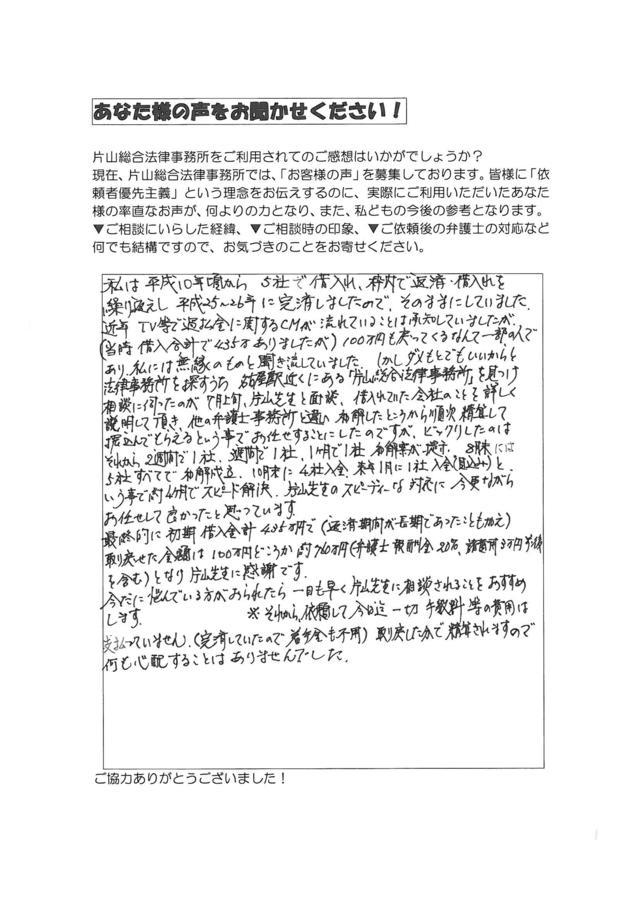 あなた様の声をお聞かせください！
片山総合法律事務所をご利用されてのご感想はいかがでしょうか？
現在、片山総合法律事務所では、「お客様の声」を募集しております。皆様に「依
頼者優先主義」という理念をお伝えするのに、実際にご利用いただいたあなた
様の率直なお声が、何よりの力となり、また、私どもの今後の参考となります。
▼ご相談にいらした経緯、▼ご相談時の印象、▼ご依頼後の弁護士の対応など
何でも結構ですので、お気づきのことをお寄せください。
私は平成10年頃から 5社で借入れ、枠内で返済・借入れを
繰り返えし 平成25～26年に完済しましたので、そのままにしていました。
近年 TV等で過払金に関するCMが流れていることは承知していましたが、
(当時 借入合計で435万ありましたが) 100万円も戻ってくるなんて一部の人で
あり、私には無縁のものと聞き流していました。しかしダメもとでもいいからと
法律事務所を探すうち 名古屋駅近くにある「片山総合法律事務所」を見つけ
相談に伺ったのが 7月上旬、片山先生と面談、借入れていた会社のことを詳しく
説明して頂き、他の弁護士事務所と違い 和解したところから順次精算して
振込んでもらえるという事でお任せすることにしたのですが、ビックリしたのは
それから 2週間で1社、 週間で1社、1ヶ月で1社 和解案が 8月末には
5社すべてで和解成立、10月末に4社入金、来年1月に1社入金(見込み)と
いう事で約4ヶ月でスピード解決、片山先生のスピーディーな対応に 今更ながら
お任せして良かったと思っています。
最終的に 初期借入合計 435万円で (返済期間が長期であったことも加え)
取戻せた金額は 100万円どころか 約760万円(弁護士報酬金20%、諸費用3万円 
を含む)となり片山先生に感謝です。
今だに悩んでいる方がおられたら 一日も早く片山先生に相談されることをおすすめ
します。 ※それから、依頼して今日迄一切手数料等の費用は
支払っていません。(完済していたので着手金も不用) 取戻したお金で精算されますので
何も心配することはありませんでした。
ご協力ありがとうございました！